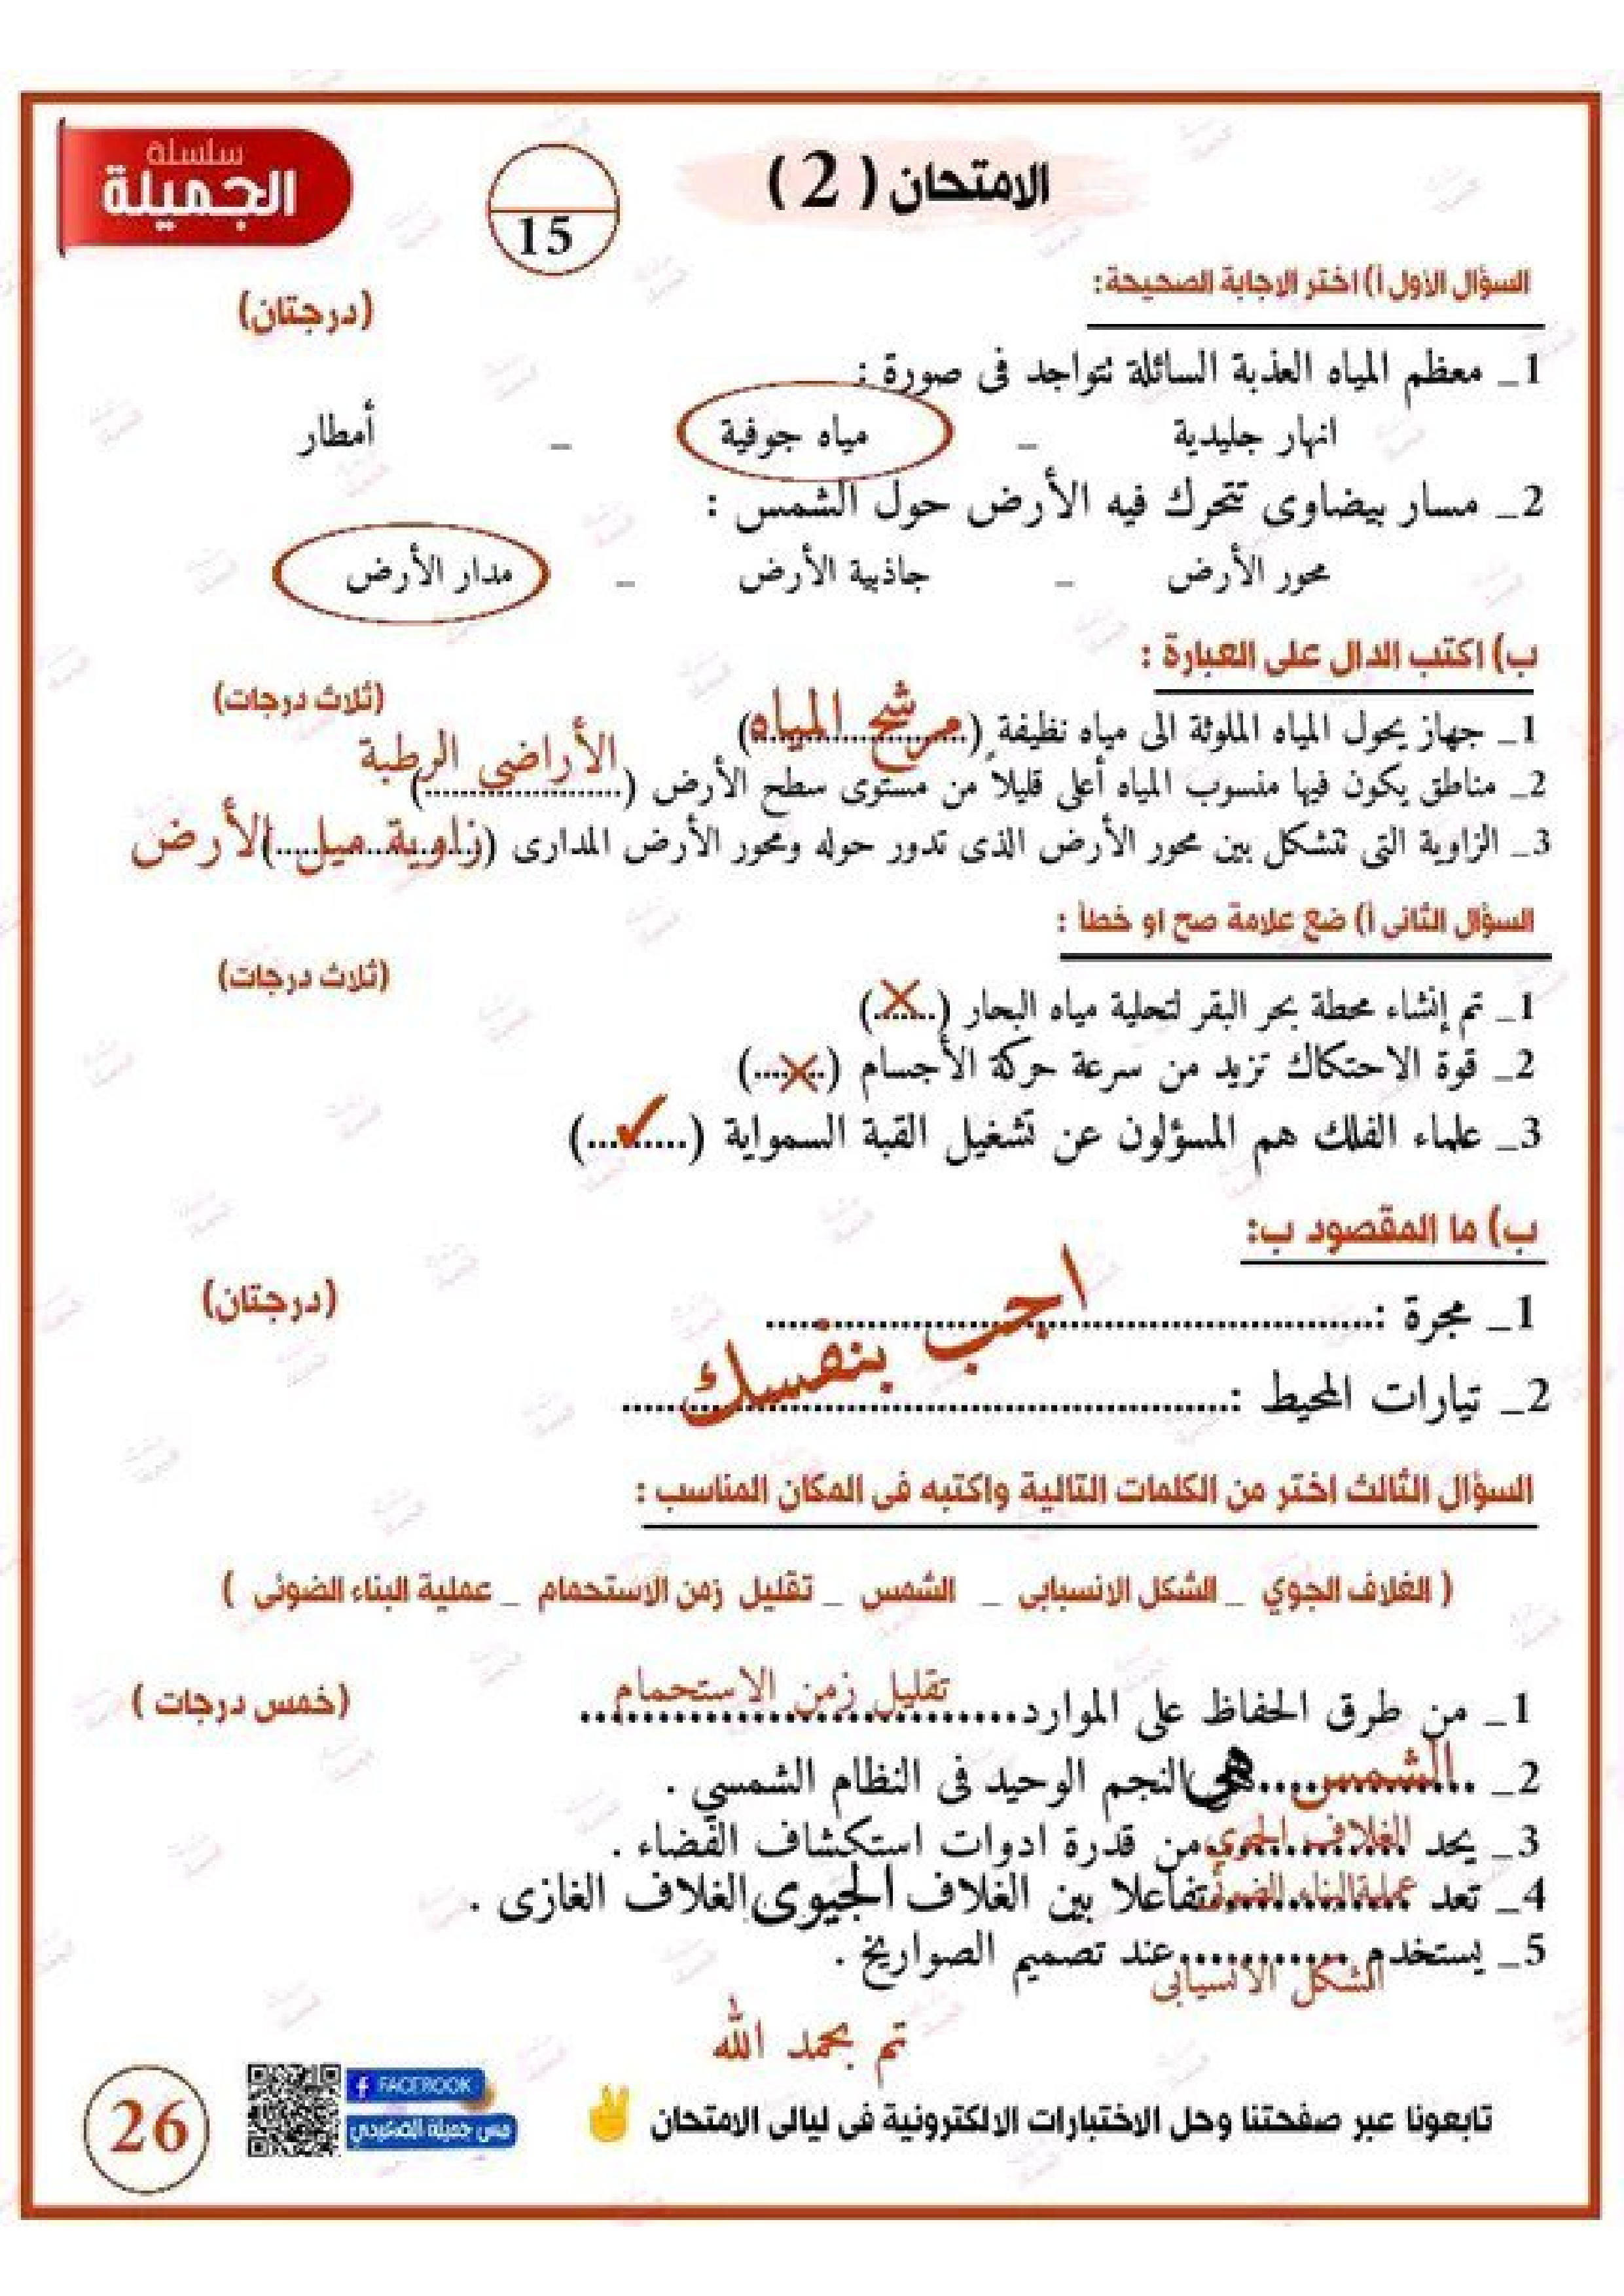 سلسلة
الجميلة
15
الامتحان ( 2 )
السؤال الاول أ) اختر الاجابة الصحيحة:
(درجتان)
1_ معظم المياه العذبة السائلة تتواجد فى صورة :
انهار جليدية _ مياه جوفية _ أمطار
2_ مسار بيضاوى تتحرك فيه الأرض حول الشمس :
محور الأرض _ جاذبية الأرض _ مدار الأرض
ب) اكتب الدال على العبارة :
(ثلاث درجات)
1_ جهاز يحول المياه الملوثة الى مياه نظيفة (مرشح المياه)
2_ مناطق يكون فيها منسوب المياه أعلى قليلاً من مستوى سطح الأرض (الأراضي الرطبة)
3_ الزاوية التى تتشكل بين محور الأرض الذى تدور حوله ومحور الأرض المدارى (زاوية ميل الأرض)
السؤال الثانى أ) ضع علامة صح او خطأ :
(ثلاث درجات)
1_ تم إنشاء محطة بحر البقر لتحلية مياه البحار (✗)
2_ قوة الاحتكاك تزيد من سرعة حركة الأجسام (✗)
3_ علماء الفلك هم المسؤلون عن تشغيل القبة السمواية (✓)
ب) ما المقصود ب:
(درجتان)
1_ مجرة :..............................
2_ تيارات المحيط :..............................
اجب بنفسك
السؤال الثالث اختر من الكلمات التالية واكتبه فى المكان المناسب :
( الغلاف الجوي _ الشكل الانسيابى _ الشمس _ تقليل زمن الاستحمام _ عملية البناء الضوئى )
(خمس درجات )
1_ من طرق الحفاظ على الموارد تقليل زمن الاستحمام
2_ الشمس هى النجم الوحيد فى النظام الشمسي .
3_ يحد الغلاف الجوي من قدرة ادوات استكشاف الفضاء .
4_ تعد عملية البناء الضوئى تفاعلا بين الغلاف الجيوى الغلاف الغازى .
5_ يستخدم الشكل الانسيابى عند تصميم الصواريخ .
تم بحمد الله
تابعونا عبر صفحتنا وحل الاختبارات الالكترونية فى ليالى الامتحان
FACEBOOK
26